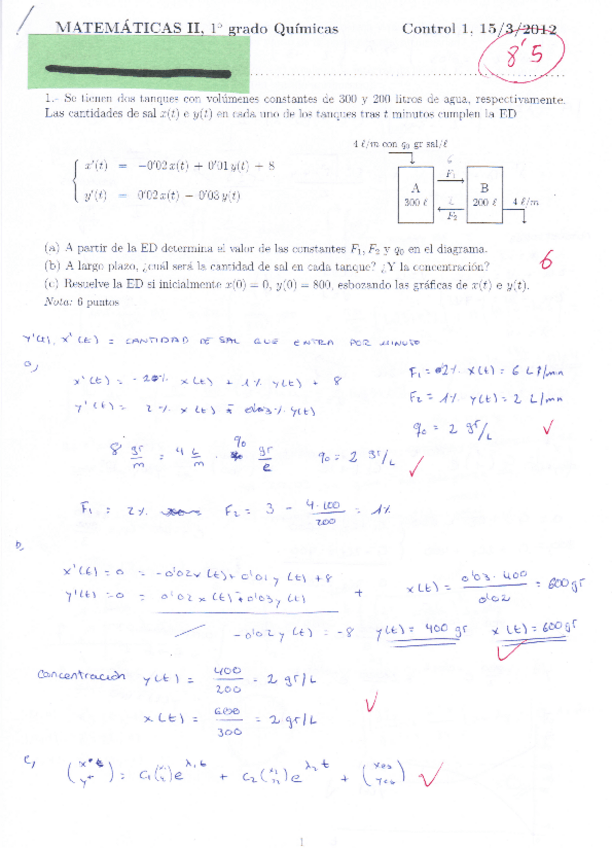 MATEMÁTICAS II, 1º grado Químicas Control 1, 15/3/2012
8'5
1.- Se tienen dos tanques con volúmenes constantes de 300 y 200 litros de agua, respectivamente.
Las cantidades de sal x(t) e y(t) en cada uno de los tanques tras t minutos cumplen la ED
x'(t) = −0'02 x(t) + 0'01 y(t) + 8
y'(t) = 0'02 x(t) − 0'03 y(t)
4 ℓ/m con q0 gr sal/ℓ
6
F1
A
300 ℓ
B
200 ℓ
2
F2
4 ℓ/m
(a) A partir de la ED determina el valor de las constantes F1, F2 y q0 en el diagrama.
(b) A largo plazo, ¿cuál será la cantidad de sal en cada tanque? ¿Y la concentración?
6
(c) Resuelve la ED si inicialmente x(0) = 0, y(0) = 800, esbozando las gráficas de x(t) e y(t).
Nota: 6 puntos
y'(t), x'(t) = CANTIDAD DE SAL QUE ENTRA POR MINUTO
a,
x'(t) = -2% x(t) + 1% y(t) + 8
y'(t) = 2% x(t) - 0'03% y(t)
F1 = 2% x(t) = 6 L/min
F2 = 1% y(t) = 2 L/min
q0 = 2 gr/L
8 gr/m = 4 L/m · q0 gr/e q0 = 2 gr/L
F1 = 2% F2 = 3 - 4·100/200 = 1%
b,
x'(t) = 0 = -0'02x(t) + 0'01 y(t) + 8
y'(t) = 0 = 0'02 x(t) + 0'03 y(t)
+
x(t) = 0'03 · 400/0'02 = 600 gr
-0'02 y(t) = -8 y(t) = 400 gr x(t) = 600 gr
Concentración y(t) = 400/200 = 2 gr/L
x(t) = 600/300 = 2 gr/L
c,
= c1 e^λ1t + c2 e^λ2t +
1